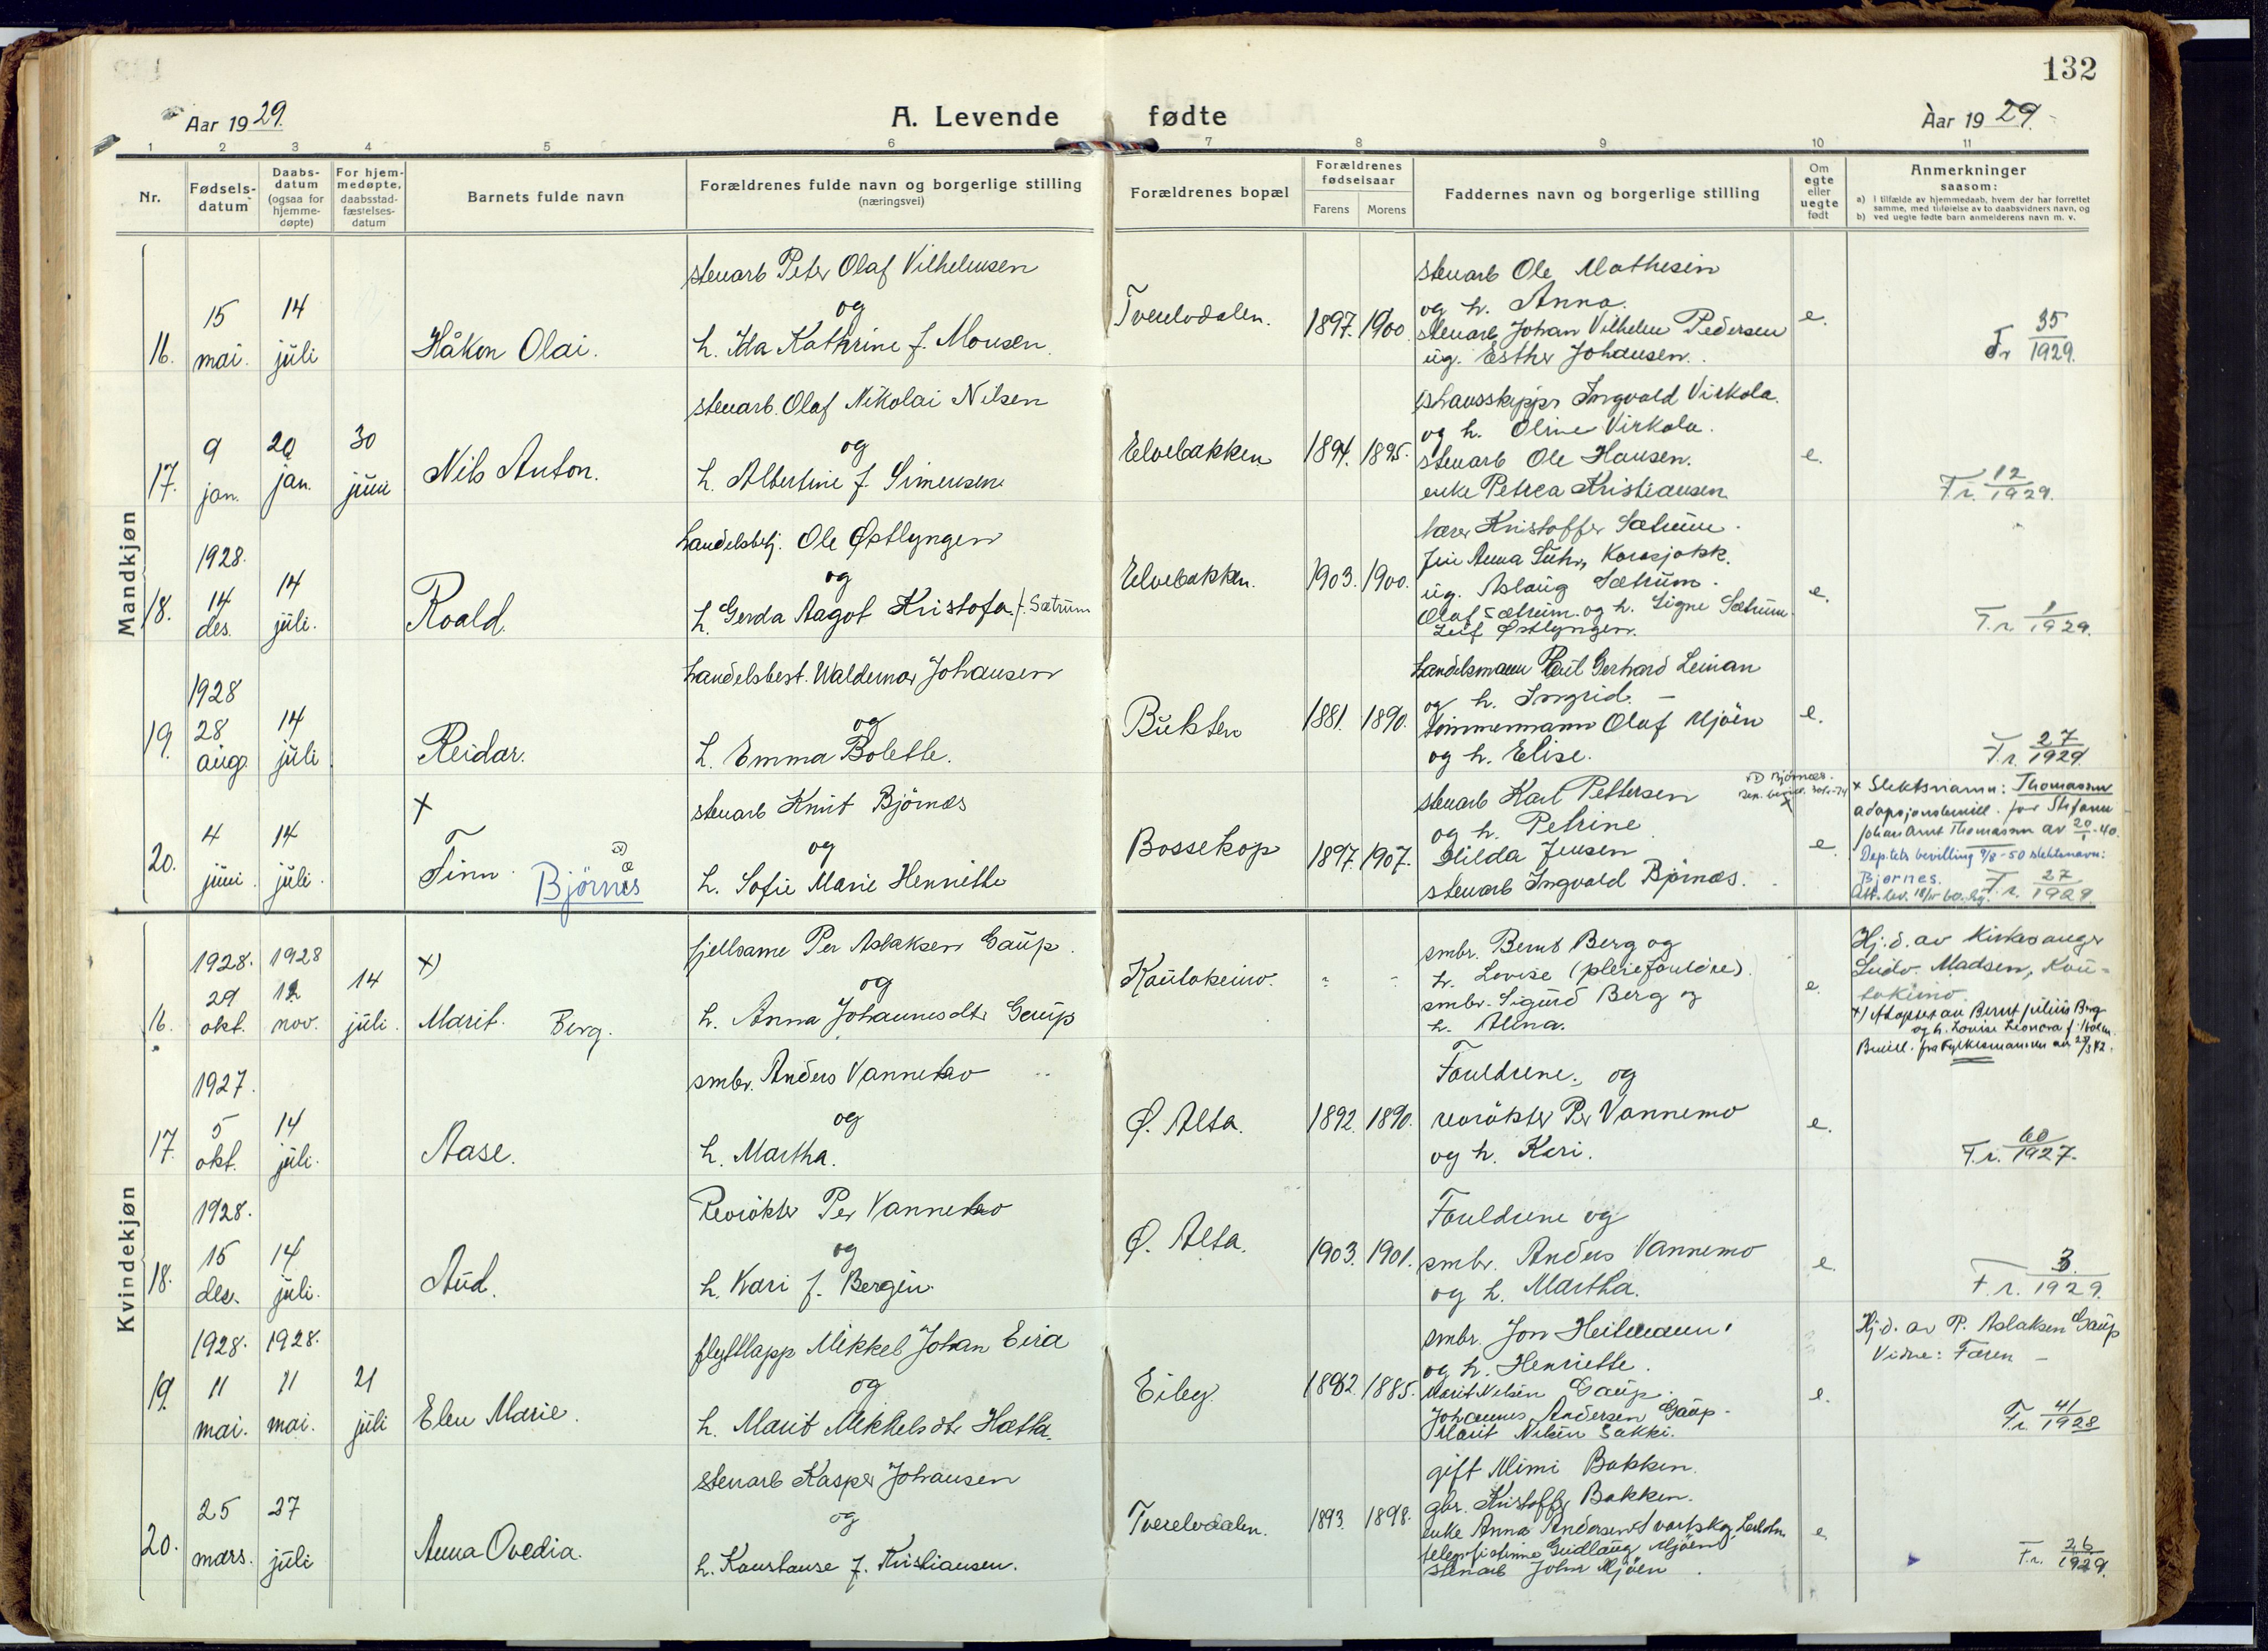 132
Aar 1929.
A. Levende fødte
Aar 1929.
1 2 3 4 5 6 7 8 9 10 11
Nr.
Fødsels-datum
Daabs-datum (ogsaa for hjemme-døpte)
For hjem-medøpte, daabsstad-fæstelses-datum
Barnets fulde navn
Forældrenes fulde navn og borgerlige stilling (næringsvei)
Forældrenes bopæl
Forældrenes fødselsaar
Farens Morens
Faddernes navn og borgerlige stilling
Om egte eller uegte født
Anmerkninger saasom:
a) I tilfælde av hjemmedaab, hvem der har forrettet samme, med tilføielse av to daabsvidners navn, og
b) ved uegte fødte barn anmelderens navn m. v.
Mandkjøn
16.
15 mai.
14 juli
Håkon Olai.
stenarb Peter Olaf Vilhelmsen
og
h. Ida Kathrine f. Monsen.
Tverelvdalen.
1897. 1900.
stenarb Ole Mathesen
og h. Anna.
stenarb Johan Vilhelm Pedersen
ug. Esther Johansen.
e.
Fr 35/1929.
17.
9 jan.
20 jan.
30 juni
Nils Anton.
stenarb. Olaf Nikolai Nilsen
og
h. Albertine f. Simensen
Elvebakken
1894. 1895.
Ingvald Virkola.
og h. Oline Virkola.
stenarb Ole Hansen.
enke Petrea Kristiansen
e.
F.r. 12/1929.
18.
1928.
14 des.
14 juli.
Roald.
handelsbetj. Ole Østlyngen
og
h. Gerda Aagot Kristofa f. Sætrum
Elvebakken.
1903. 1900.
lærer Kristoffer Sætrum.
Anna Suhr, Karasjokk.
ug. Aslaug Sætrum.
Olaf Sætrum og h. Signe Sætrum.
Leif Østlyngen.
e.
F.r. 1/1929.
19.
1928
28 aug.
14 juli
Reidar.
handelsbest. Waldemar Johansen
og
h. Emma Bolette.
Bukten
1881. 1890.
handelsmann Paul Gerhard Leinan
og h. Ingrid. —
tømmermann Olaf Mjöen
og h. Elise.
e.
F.r. 27/1929
20.
4 juni.
14 juli.
x
Finn. Björnes
x) æ
stenarb Knut Björnæs
og
h. Sofie Marie Henriette
Bossekop
1897. 1907.
stenarb Karl Pettersen
og h. Petrine.
Hilda Jensen
stenarb Ingvald Björnæs.
e.
x) Bjørnæs.
x Slektsnamn: Thomassen
adopsjonsbevill. for Stefanu
Johan Arnt Thomassen av 20/1-40.
Dep.tets bevilling 9/8-50 slektsnavn:
Bjørnes.
F.r. 27/1929
Att. lev. 18/11 60.
Kvindekjøn
16.
1928.
29 okt.
1928
12 nov.
14 juli.
x)
Marit. Berg.
fjellsame Per Aslaksen Gaup.
og
h. Anna Johannesdtr Gaup
Kautokeino.
smbr. Bernt Berg og
h. Lovise (pleieforeldre).
smbr. Sigurd Berg og
h. Alma.
e.
Hj.d. av kirkesanger
Ludv. Madsen, Kau-
tokeino.
x) Adoptert av Bernt Julius Berg
og h. Lovise Leonora f. Holm.
Bevill. fra Fylkesmannen av 23/3 42.
17.
1927.
5 okt.
14 juli.
Aase.
smbr. Anders Vannebo
og
h. Martha.
Ø. Alta.
1892. 1890.
Foreldrene. og
revrökter Per Vannemo
og h. Kari.
e.
F.r. 60/1927.
18.
1928.
15 des.
14 juli.
Aud.
Revrökter Per Vannebo
og
h. Kari f. Bergin.
Ø. Alta.
1903. 1901.
Foreldrene og
smbr. Anders Vannemo
og h. Martha.
e.
F.r. 3/1929.
19.
1928.
11 mai.
1928.
11 mai.
21 juli
Elen Marie.
flyttlapp Mikkel Johan Eira
og
h. Marit Mikkelsdtr Hætta.
Eiby.
1882. 1885.
smbr. Jon Heitmann.
og h. Henriette.
Marit Nelsen Gaup.
Johannes Andersen Gaup.
Marit Nilsen Sakki.
e.
Hj.d. av P. Aslaksen Gaup
Vidne: Faren —
F.r. 41/1928
20.
25 mars.
27 juli
Anna Ovedia.
stenarb Kasper Johansen
og
h. Konstanse f. Kristiansen.
Tverelvdalen.
1893. 1898.
gift Mimi Bakken.
gbr. Kristoffer Bakken.
enke Anna Andersen
Gudlaug Mjöen
stenarb John Mjöen.
e.
F.r. 26/1929.